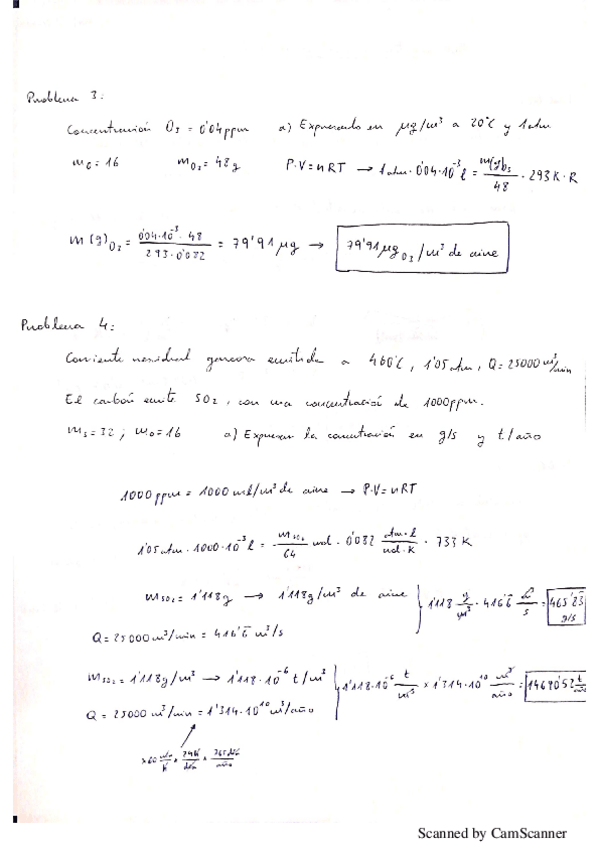 Problema 3:
Concentración O3 = 0'04 ppm a) Expresarlo en μg/m³ a 20°C y 1 atm
mO = 16 mO3 = 48 g P·V = nRT → 1 atm · 0'04·10⁻³ l = m(g)O3/48 · 293 K · R
m (g)O3 = 0'04·10⁻³·48 / 293·0'082 = 79'91 μg → 79'91 μg O3/m³ de aire
Problema 4:
Corriente residual gaseosa emitida a 460°C, 1'05 atm, Q = 25000 m³/min
El carbón emite SO2, con una concentración de 1000 ppm.
mS = 32 ; mO = 16 a) Expresar la concentración en g/s y t/año
1000 ppm = 1000 ml/m³ de aire → P·V = nRT
1'05 atm · 1000·10⁻³ l = m/64 mol · 0'082 atm·l/mol·K · 733 K
mSO2 = 1'118 g → 1'118 g/m³ de aire
1'118 g/m³ · 416'6 /s = 465'83 g/s
Q = 25000 m³/min = 416'6 m³/s
mSO2 = 1'118 g/m³ → 1'118·10⁻⁶ t/m³
1'118·10⁻⁶ t/m³ × 1'314·10¹⁰ m³/año = 14690'52 t/año
Q = 25000 m³/min = 1'314·10¹⁰ m³/año
×60 min/h × 24h/día × 365 días/año
Scanned by CamScanner